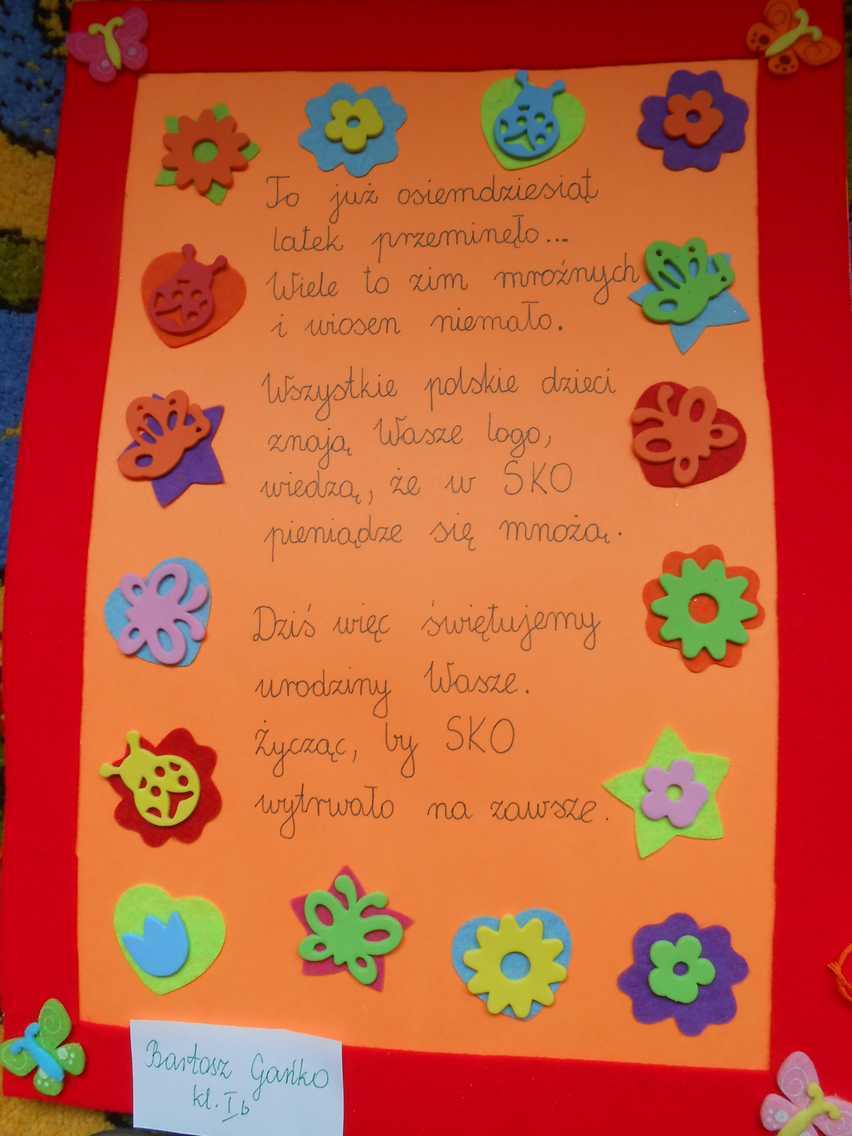 To już osiemdziesiąt
latek przeminęło...
Wiele to zim mroźnych
i wiosen niemało.
Wszystkie polskie dzieci
znają Wasze logo,
wiedzą, że w SKO
pieniądze się mnożą.
Dziś więc świętujemy
urodziny Wasze.
Życząc, by SKO
wytrwało na zawsze.
Bartosz Gańko
kl. I b